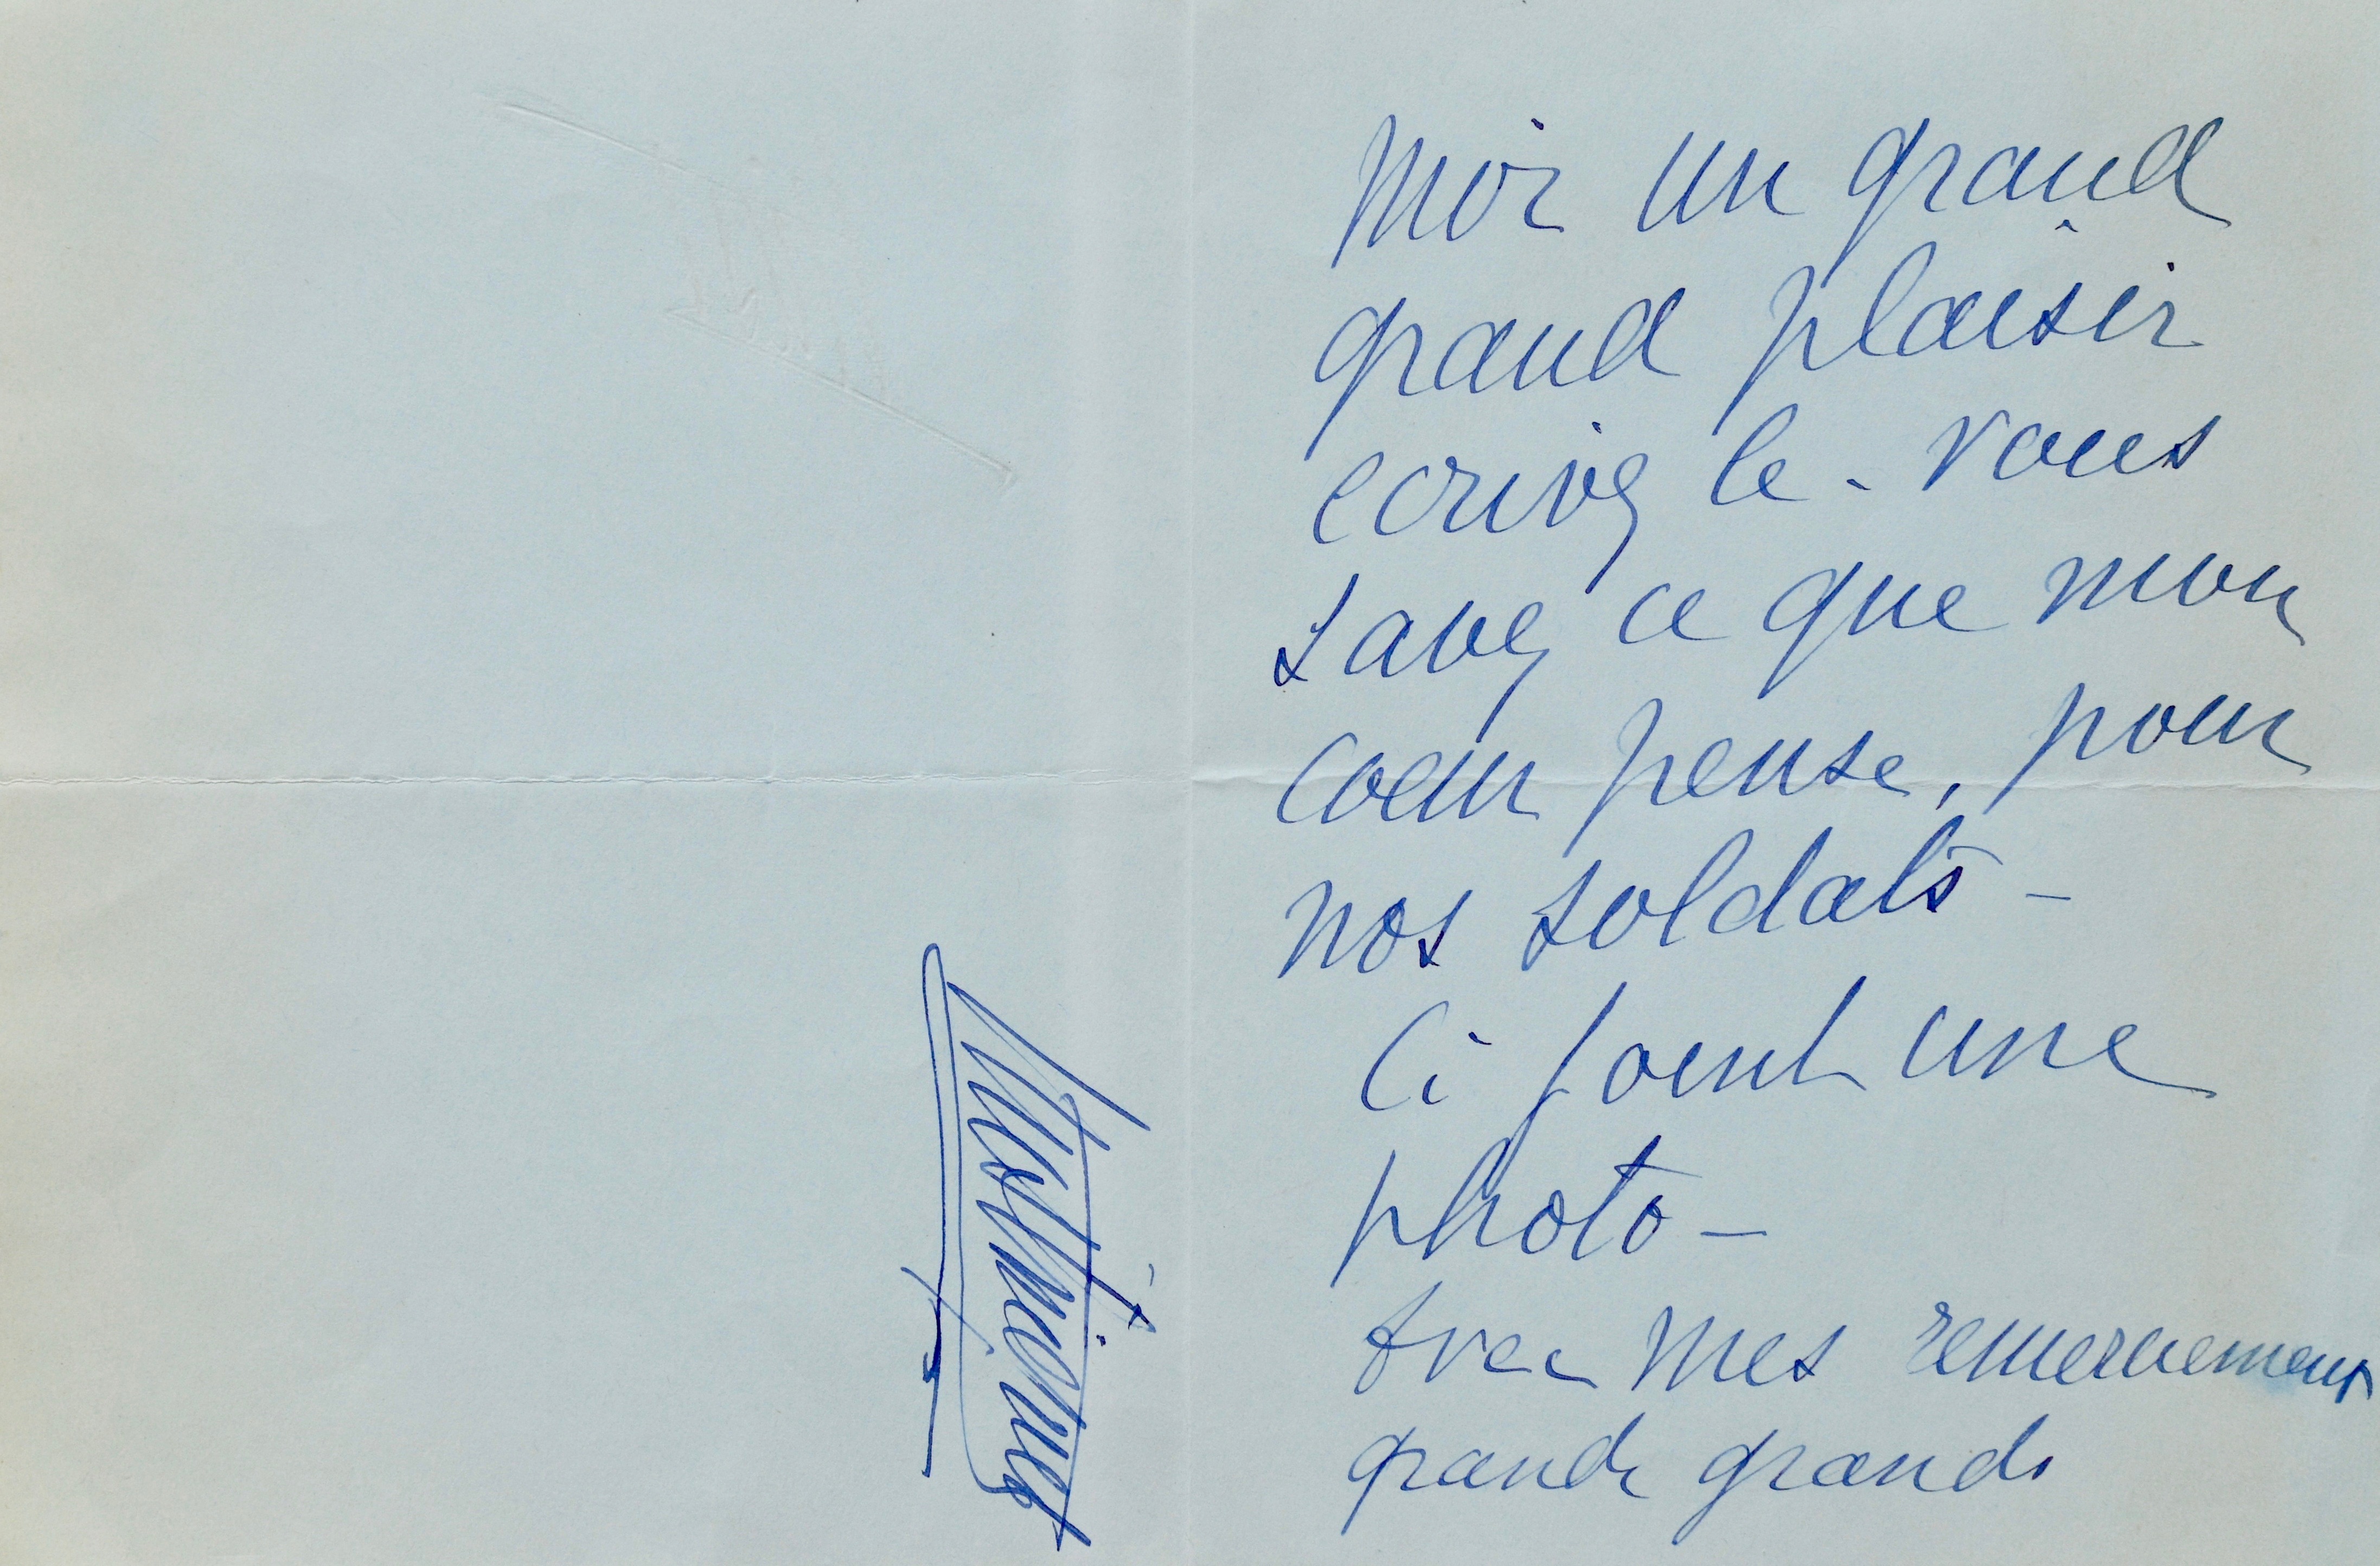 moi un grand
grand plaisir
ecrivez le - vous
savez ce que mon
coeur pense, pour
nos soldats -
Ci joint une
photo -
Avec mes remerciements
grands grands
Mistinguett